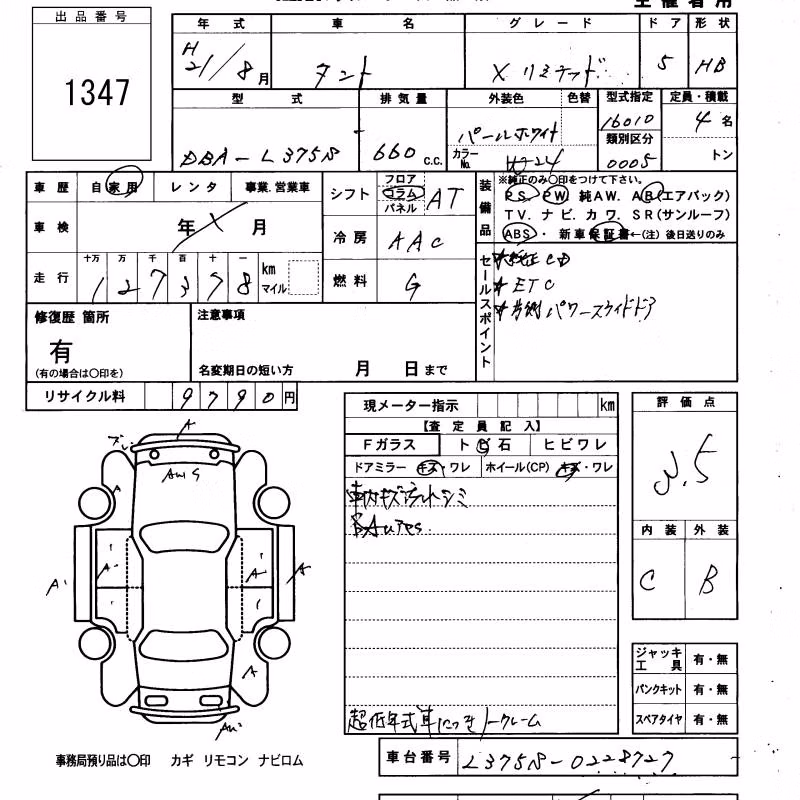 出品番号
1347
年式 車名 グレード ドア 形状
H21/8月 タント X リミテッド 5 HB
型式 排気量 外装色 色替 型式指定 定員・積載
DBA-L375S 660c.c. パールホワイト 16010 4名
カラーNo. W24 類別区分 0005 トン
車歴 自家用 レンタ 事業.営業車
シフト フロア コラム パネル AT
車検 年 月
冷房 AAC
走行 十万 万 千 百 十 一
127378 km マイル
燃料 G
装備品 ※純正のみ〇印をつけて下さい。
PS. PW. 純AW. AB(エアバック)
TV. ナビ. カワ. SR(サンルーフ)
ABS・ 新車保証書←(注)後日送りのみ
セールスポイント
*純正CD
*ETC
*片側パワースライドドア
修復歴 箇所
有
(有の場合は〇印を)
注意事項
名変期日の短い方 月 日まで
リサイクル料 9790円
現メーター指示 km
【査定員記入】
Fガラス トビ石 ヒビワレ
ドアミラー キズ・ワレ ホイール(CP) キズ・ワレ
車内キズ シミ
超低年式車につきノークレーム
評価点
3.5
内装 外装
C B
ジャッキ工具 有・無
パンクキット 有・無
スペアタイヤ 有・無
A
ズレ
A
A'
A
A
A
A
事務局預り品は〇印 カギ リモコン ナビロム
車台番号 L375S-0228727